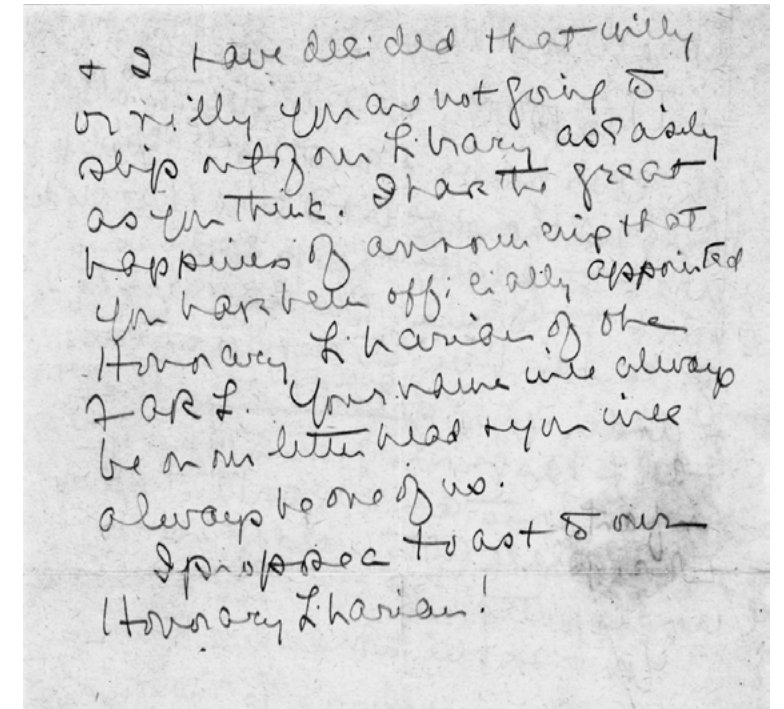 + I have decided that willy
or nilly you are not going to
slip out of our Library as easily
as you think. I have the great
happiness of announcing that
you have been officially appointed
Honorary Librarian of the
FARL. Your name will always
be on our letter head + you will
always be one of us.
I propose a toast to our
Honorary Librarian!